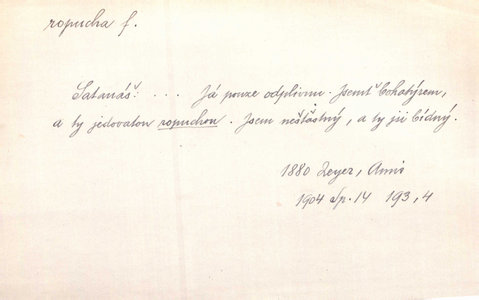 ropucha f.
Satanáš: . . . Já pouze odplivnu. Jsemť bohatýrem,
a ty jedovatou ropuchou. Jsem nešťastný, a ty jsi bídný.
1880 Zeyer, Amis
1904 sp. 14 193, 4